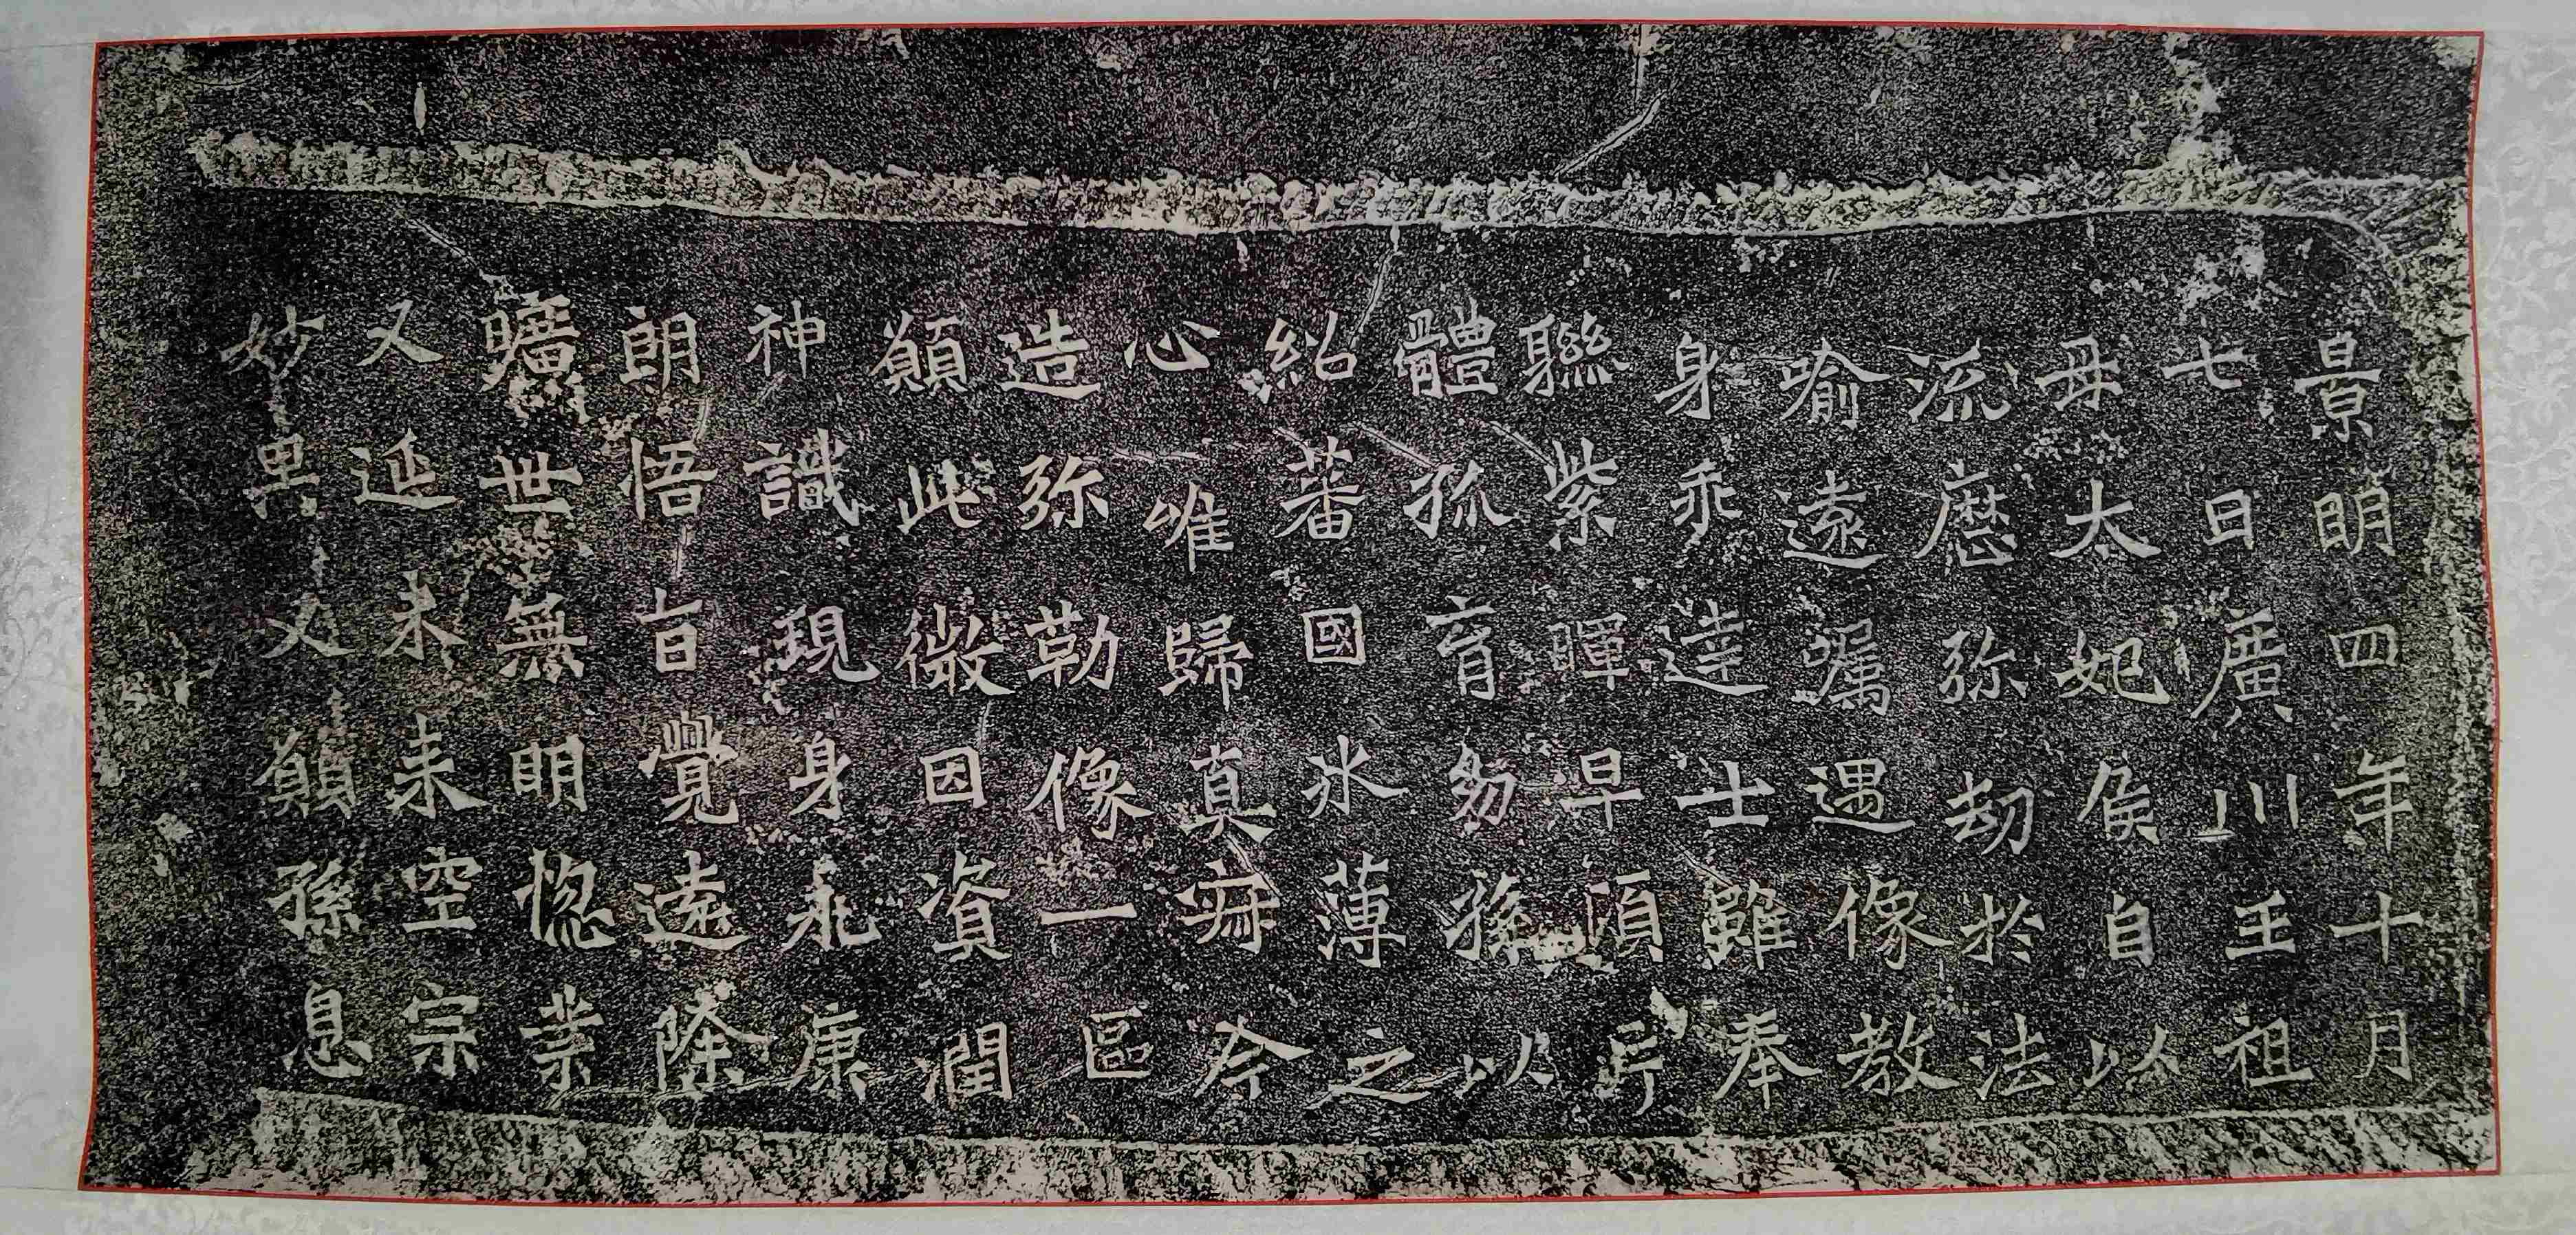 景明四年十月
七日廣川王祖
母太妃侯自以
流歷弥劫於法
喻遠嘱遇像教
身乖達士雖奉
聯紫暉早頃片
體孤育幼孫以
紹蕃國冰薄之
心唯歸真寂今
造弥勒像一區
願此微因資潤
神識現身永康
朗悟旨覺遠除
曠世無明惚業
又延未来空宗
妙果又願孫息